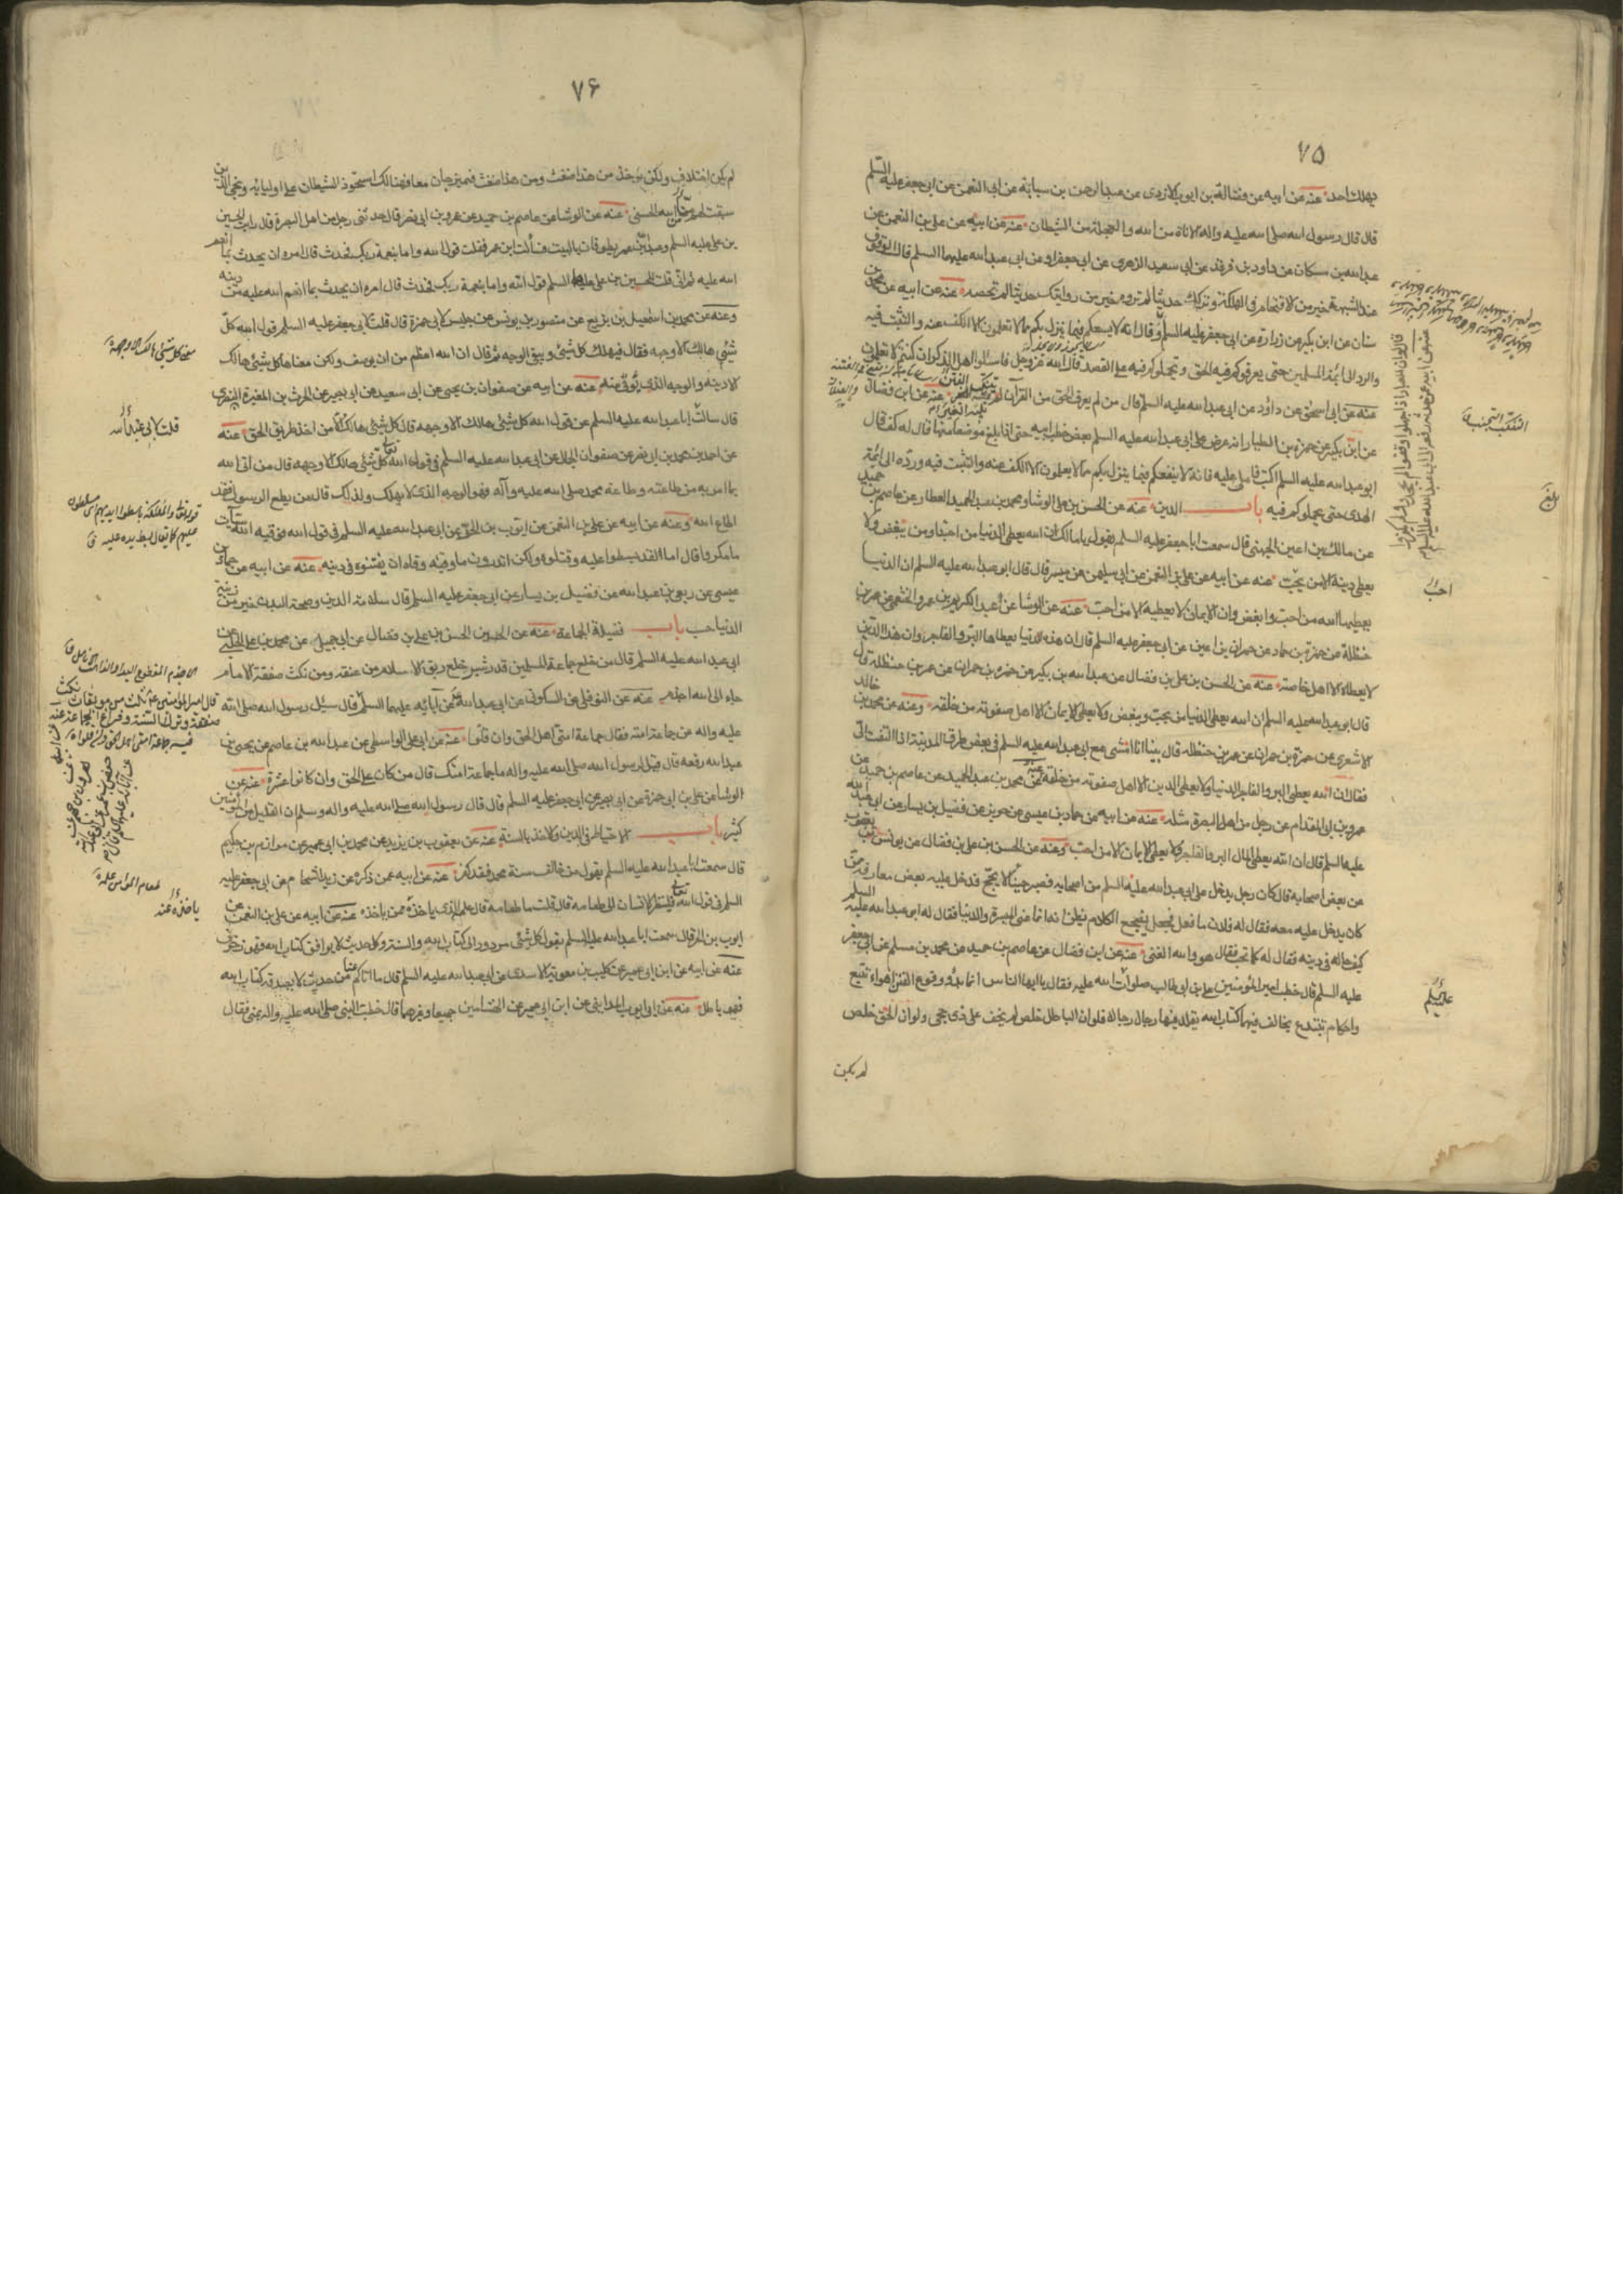 ٧٥
يهلك احد عنه عن ابيه عن فضالة بن ايوب الازدى عن عبدالرحمن بن سيابة عن ابى النعمن عن ابى جعفر عليه السلم
قال قال رسول الله صلى الله عليه واله الاناة من الله والعجلة من الشيطان عنه عن ابيه عن على بن النعمن عن
عبدالله بن مسكان عن داود بن فرقد عن ابى سعيد الزهرى عن ابى جعفر او عن ابى عبدالله عليهما السلم قال الوقوف
عند الشبهة خير من الاقتحام فى الهلكة وتركك حديثا لم تروه خير من روايتك حديثا لم تحصه عنه عن ابيه عن محمد بن
سنان عن ابن بكير عن زرارة عن ابى جعفر عليه السلم وقال انه لا يسعكم فيما ينزل بكم مما لا تعلمون الا الكف عنه والتثبت فيه
والرد الى ائمة المسلمين حتى يعرفوكم فيه الحق و يحملوكم فيه على القصد قال الله عز وجل فاسئلوا اهل الذكر ان كنتم لا تعلمون
عنه عن ابى اسحق عن داؤد عن ابى عبدالله عليه السلم قال من لم يعرف الحق من القرآن لم يتنكب الفتن عنه عن ابن فضال
عن ابن بكير عن حمزة بن الطيار انه عرض على ابى عبدالله عليه السلم بعض خطب ابيه حتى اذا بلغ موضعا منها قال له كف قال
ابو عبدالله عليه السلم اكتب فاملى عليه فانه لا ينفعكم فيما ينزل بكم مما لا يعلمون الا الكف عنه والتثبت فيه ورده الى ائمة
الهدى حتى يحملوكم فيه باب الدين عنه عن الحسن بن على الوشا ومحمد بن عبد الحميد العطار عن عاصم بن حميد
عن مالك بن اعين الجهنى قال سمعت ابا جعفر عليه السلم يقول يا مالك ان الله يعطى الدنيا من احب ومن يبغض ولا
يعطى دينه الا من يحب عنه عن ابيه عن على بن النعمن عن ابى سليمن عن ميسر قال قال ابو عبدالله عليه السلم ان الدنيا
يعطيها الله من احب وابغض وان الايمان لا يعطيه الا من احب عنه عن الوشا عن عبد الكريم بن عمرو الخثعمى عن عمر بن
حنظلة عن حمزة بن حماد عن حمران بن اعين عن ابى جعفر عليه السلم قال ان هذه الدنيا يعطاها البر والفاجر وان هذا الدين
لا يعطاه الا اهل خاصة عنه عن الحسن بن على بن فضال عن عبدالله بن بكير عن حمزة بن حمران عن عمر بن حنظلة قال
قال ابو عبدالله عليه السلم ان الله يعطى الدنيا من يحب ويبغض ولا يعطى الايمان الا اهل صفوته من خلقه وعنه عن محمد بن خالد
الاشعرى عن حمزة بن حمران عن عمر بن حنظلة قال بينا انا امشى مع ابى عبدالله عليه السلم فى بعض طرق المدينة اذا التفت الى
فقال ان الله يعطى البر والفاجر الدنيا ولا يعطى الدين الا اهل صفوته من خلقه عنه عن محمد بن عبد الحميد عن عاصم بن حميد عن
عمرو بن ابى المقدام عن رجل من اهل البصرة مثله عنه عن ابيه عن حماد بن عيسى عن حريز عن فضيل بن يسار عن ابى عبدالله
عليه السلم قال ان الله يعطى المال البر والفاجر ولا يعطى الايمان الا من احب وعنه عن الحسن بن على بن فضال عن يونس بن يعقوب
عن بعض اصحابه قال كان رجل يدخل على ابى عبدالله عليه السلم من اصحابه فصبر حينا لا يحج فدخل عليه بعض معارفه
كان يدخل عليه معه فقال له فلان ما فعل فجعل يضجع الكلام يظن انه انما عنى الميسرة والدنيا فقال له ابو عبدالله عليه السلم
كيف حاله فى دينه فقال له كما تحب فقال هو والله الغنى عنه عن ابن فضال عن عاصم بن حميد عن محمد بن مسلم عن ابى جعفر
عليه السلم قال خطب امير المؤمنين على بن ابى طالب صلوات الله عليه فقال يا ايها الناس انما بدؤ وقوع الفتن اهواء تتبع
واحكام تبتدع يخالف فيها كتاب الله يقلد فيها رجال رجالا فلو ان الباطل خلص لم يخف على ذى حجى ولو ان الحق خلص
لم يكن
التنكب التجنب ق
بلغ
احب
عليه السلم
٧۶
لم يكن اختلاف ولكن يؤخذ من هذا ضغث ومن هذا ضغث فيمزجان معا فهنالك استحوذ الشيطان على اوليائه ونجى الذين
سبقت لهم من الله الحسنى عنه عن الوشا عن عاصم بن حميد عن عمرو بن ابى نصر قال حدثنى رجل من اهل البصرة قال رايت الحسين
بن على عليه السلم وعبدالله بن عمر يطوفان بالبيت فسألت ابن عمر فقلت قول الله واما بنعمة ربك فحدث قال امره ان يحدث بما انعم
الله عليه ثم انى قلت للحسين بن على عليه السلم قول الله واما بنعمة ربك فحدث قال امره ان يحدث بما انعم الله عليه من دينه
وعنه عن محمد بن اسمعيل بن بزيع عن منصور بن يونس عن جليس لابى حمزة قال قلت لابى جعفر عليه السلم قول الله كل
شئى هالك الا وجهه فقال فيهلك كل شئى ويبقى الوجه ثم قال ان الله اعظم من ان يوصف ولكن معناها كل شئى هالك
الا دينه والوجه الذى يؤتى منه عنه عن ابيه عن صفوان بن يحيى عن ابى سعيد عن ابى بصير عن الحرث بن المغيرة النصرى
قال سالت ابا عبدالله عليه السلم عن قول الله كل شئى هالك الا وجهه قال كل شئى هالك الا من اخذ طريق الحق عنه
عن احمد بن محمد بن ابى نصر عن صفوان الجمال عن ابى عبدالله عليه السلم فى قول الله تعالى كل شئى هالك الا وجهه قال من اتى الله
بما امر به من طاعته وطاعة محمد صلى الله عليه وآله فهو الوجه الذى لا يهلك ولذلك قال من يطع الرسول فقد
اطاع الله وعنه عن ابيه عن على بن النعمن عن ايوب بن الحر عن ابى عبدالله عليه السلم فى قول الله فوقيه الله سيئات
ما مكروا قال اما لقد بسطوا عليه وقتلوه ولكن اتدرون ما وقيه وقاه ان يفتنوه فى دينه عنه عن ابيه عن حماد بن
عيسى عن ربعى بن عبدالله عن فضيل بن يسار عن ابى جعفر عليه السلم قال سلامة الدين وصحة البدن خير من زينة
الدنيا حسب باب فضيلة الجماعة عنه عن الحسن بن على بن فضال عن ابى جميل عن محمد بن على الحلبى عن
ابى عبدالله عليه السلم قال من خلع جماعة المسلمين قدر شبر خلع ربق الاسلام من عنقه ومن نكث صفقة الامام
جاء الى الله اجذم عنه عن النوفلى عن السكونى عن ابى عبدالله عن آبائه عليهم السلم قال سئل رسول الله صلى الله
عليه واله عن جماعة امته فقال جماعة امتى اهل الحق وان قلوا عنه عن ابى على الواسطى عن عبدالله بن عاصم عن يحيى بن
عبدالله رفعه قال قيل لرسول الله صلى الله عليه واله ما جماعة امتك قال من كان على الحق وان كانوا عشرة عنه عن
الوشا عن على بن ابى حمزة عن ابى بصير عن ابى جعفر عليه السلم قال قال رسول الله صلى الله عليه واله وسلم ان القليل من المؤمنين
كثير باب الاحتياط فى الدين والاخذ بالسنة عنه عن يعقوب بن يزيد عن محمد بن ابى عمير عن مرازم بن حكيم
قال سمعت ابا عبدالله عليه السلم يقول من خالف سنة محمد فقد كفر عنه عن ابيه عمن ذكره عن زيد الشحام عن ابى جعفر عليه
السلم فى قول الله تعالى فلينظر الانسان الى طعامه قال قلت ما طعامه قال علمه الذى ياخذه ممن ياخذه عنه عن ابيه عن على بن النعمن عن
ايوب بن الحر قال سمعت ابا عبدالله عليه السلم يقول كل شئى مردود الى كتاب الله والسنة وكل حديث لا يوافق كتاب الله فهو زخرف
عنه عن ابيه عن ابن ابى عمير عن كليب بن معوية الاسدى عن ابى عبدالله عليه السلم قال ما اتاكم عنا من حديث لا يصدقه كتاب الله
فهو باطل عنه عن ابى ايوب المداينى عن ابن ابى عمير عن الهشامين جميعا وغيرهما قال خطب النبى صلى الله عليه واله بمنى فقال
معنى كل شئى هالك الا وجهه
قلت لابى عبدالله
قوله تعالى والملئكة باسطوا ايديهم اى مسلطون
عليهم كما يقال بسط يده عليه ق